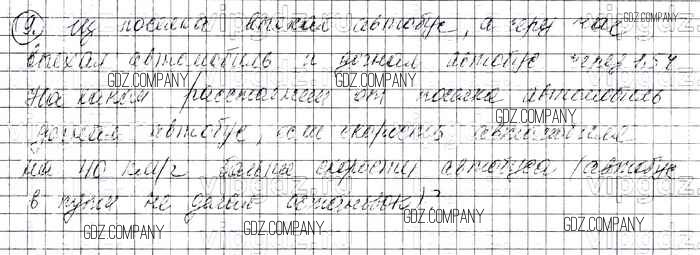 9. Из поселка выехал автобус, а через час
выехал автомобиль и догнал автобус через 1,5 ч
На каком расстоянии от поселка автомобиль
догнал автобус, если скорость автомобиля
на 40 км/ч больше скорости автобуса (автобус
в пути не делал остановок)?
GDZ.COMPANY
GDZ.COMPANY
GDZ.COMPANY
GDZ.COMPANY
GDZ.COMPANY
GDZ.COMPANY
GDZ.COMPANY
GDZ.COMPANY
GDZ.COMPANY
GDZ.COMPANY